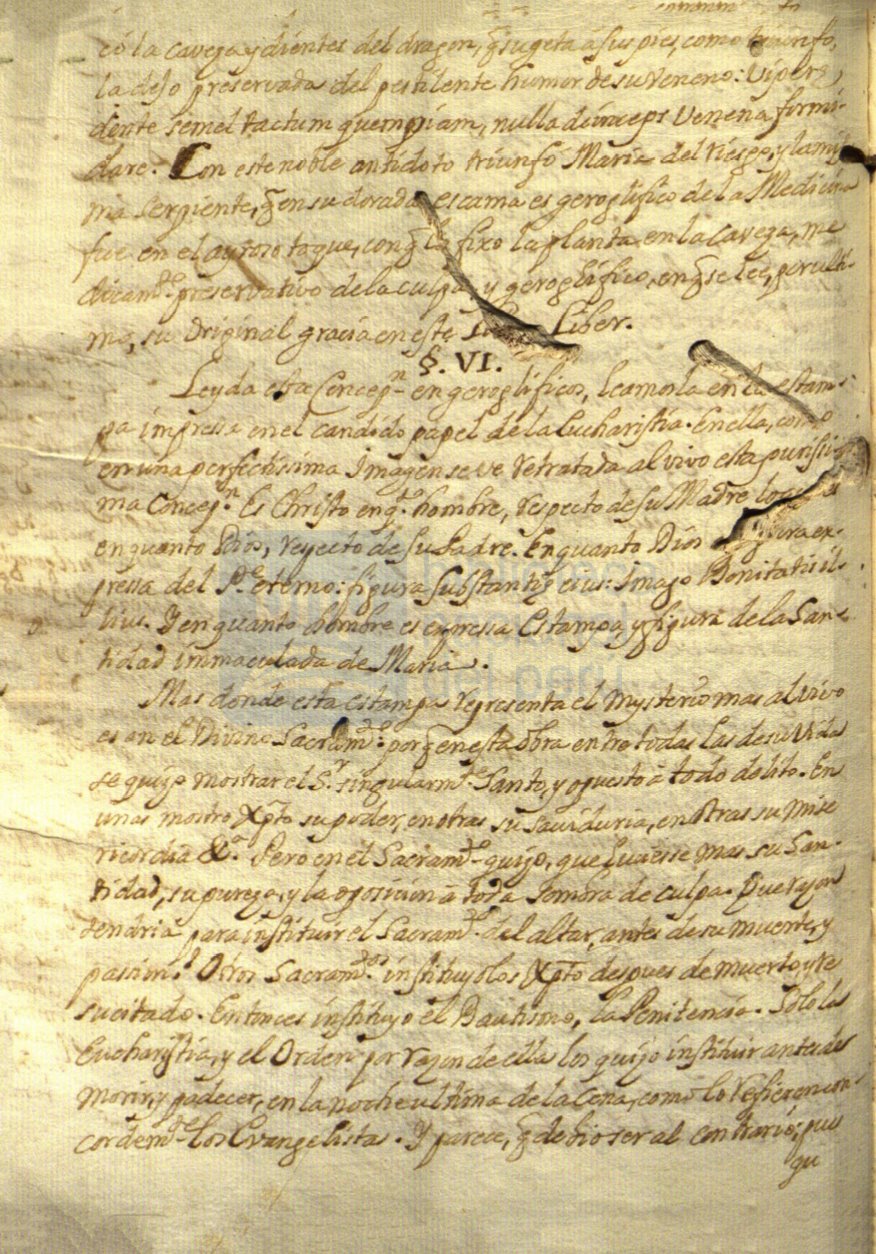 có la caveza y dientes del dragon, q̃ sugeta á sus pies, como triunfo,
la dejo preservada del pestilente humor de su veneno: Vipere
dente semel tactum quempiam, nulla deinceps venena formi-
dare. Con este noble antidoto triunfó Maria del riesgo, y la mis
ma serpiente, q̃ en su dorada escama es geroglifico de la Medicina
fue en el ayroso toque, con q̃ la fixo la planta en la caveza, me
dicam.to preservativo de la culpa, y geroglifico, en q̃ se lee, por ulti-
mo, su Original gracia en este Liber.
§. VI.
Leyda esta Concep.n en geroglificos, leamosla en la estam-
pa impressa en el candido papel de la Eucharistia. En ella, como
en una perfectissima Imagen se ve retratada al vivo esta purissi
ma Concep.n Es Christo en q.to hombre, respecto de su Madre lo que es
en quanto Dios, respecto de su Padre. En quanto Dios es figura ex-
pressa del P.e eterno: figura substantiæ eius: Imago Bonitatis il-
lius. Y en quanto hombre es expressa Estampa, y figura de la San-
tidad immaculada de Maria.
Mas donde esta estampa representa el mysterio mas al vivo
es en el Divino Sacram.to porq̃ en esta obra entre todas las de su Vida
se quizo mostrar el S.r singularm.te Santo, y opuesto á todo delito. En
unas mostro Xp̃to su poder, en otras su saviduria, en otras su mise
ricordia &.a Pero en el Sacram.to quizo, que luciesse mas su San-
tidad, su pureza, y la oposicion á toda sombra de culpa. Que razon
tendria para instituir el Sacram.to del altar, antes de su muerte, y
passion? Otros Sacram.tos instituyolos Xp̃to despues de muerto, y re
sucitado. Entonces instituyo el Bautismo, la Penitencia. Solo la
Eucharistia, y el Orden por razon de ella los quizo instituir antes de
morir, y padecer, en la noche ultima de la Cena, como lo refieren con-
cordem.te los Evangelistas. Y parece, q̃ debio ser al contrario; pues
qu